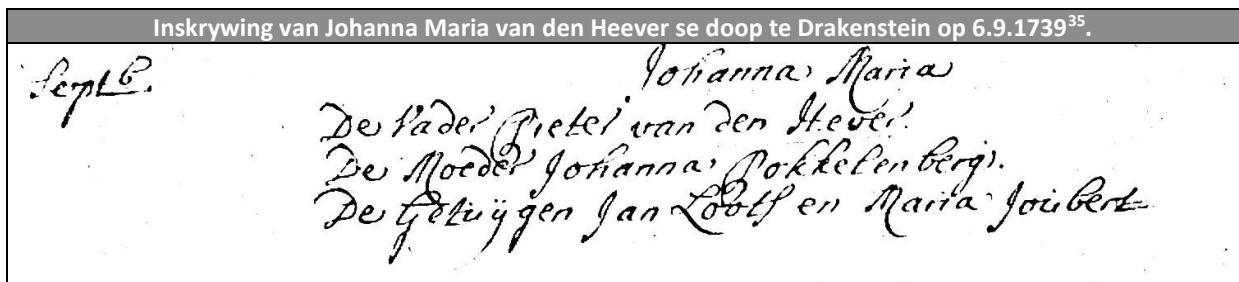 Inskrywing van Johanna Maria van den Heever se doop te Drakenstein op 6.9.1739³⁵.
Septᵇ. Johanna Maria
De Vader Pieter van den Hever.
De Moeder Johanna Pokkelenberg.
De Getuijgen Jan Looth en Maria Joubert